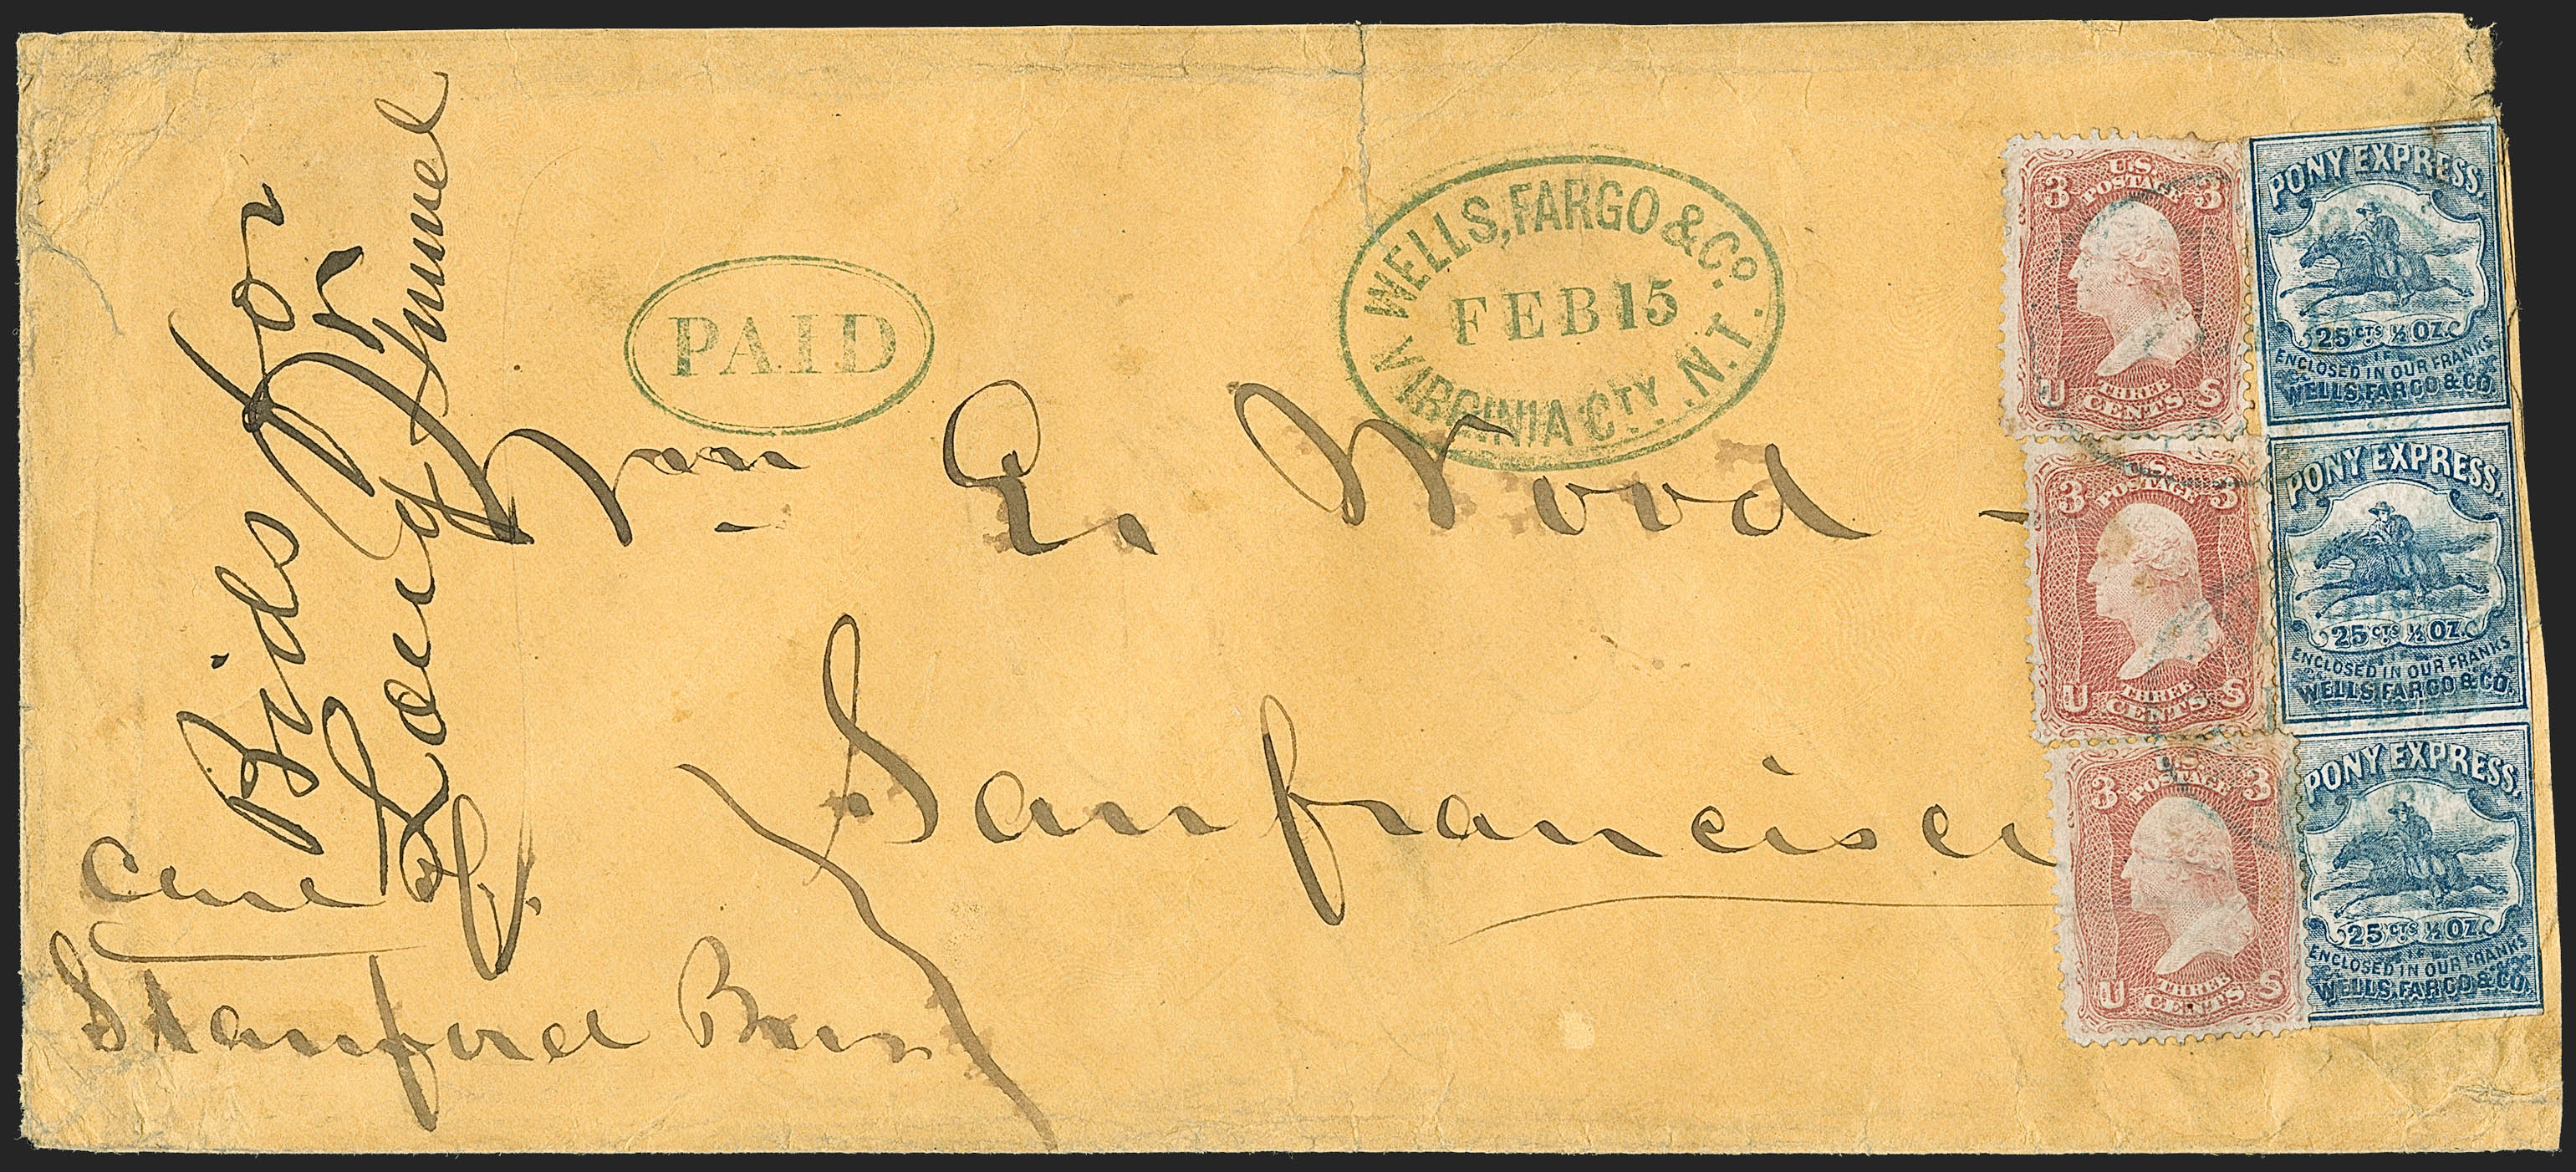 Bids for
Long Tunnel
PAID
WELLS, FARGO & Co.
FEB 15
VIRGINIA CTY. N.T.
Wm E. Wood
Sanfrancisco
Care
Stanford Bros
U.S. POSTAGE
3 3
U THREE CENTS S
U.S. POSTAGE
3 3
U THREE CENTS S
U.S. POSTAGE
3 3
U THREE CENTS S
PONY EXPRESS.
25 CTS ½ OZ.
IF
ENCLOSED IN OUR FRANKS
WELLS, FARGO & CO.
PONY EXPRESS.
25 CTS ½ OZ.
IF
ENCLOSED IN OUR FRANKS
WELLS, FARGO & CO.
PONY EXPRESS.
25 CTS ½ OZ.
IF
ENCLOSED IN OUR FRANKS
WELLS, FARGO & CO.